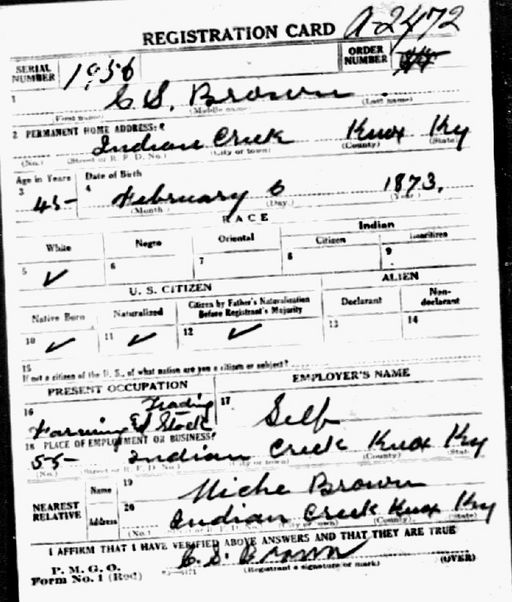 REGISTRATION CARD A-2472
SERIAL NUMBER 1956 ORDER NUMBER
1 C S. Brown.
(First name) (Middle name) (Last name)
2 PERMANENT HOME ADDRESS:
Indian Creek Knox Ky
(No.) (Street or R. F. D. No.) (City or town) (County) (State)
Age in Years Date of Birth
3 45 4 February 6 1873.
(Month) (Day) (Year)
RACE
White Negro Oriental Indian
Citizen Noncitizen
5 ✓ 6 7 8 9
U. S. CITIZEN ALIEN
Native Born Naturalized Citizen by Father's Naturalization Before Registrant's Majority Declarant Non-declarant
10 ✓ 11 ✓ 12 ✓ 13 14
15
If not a citizen of the U. S., of what nation are you a citizen or subject?
PRESENT OCCUPATION EMPLOYER'S NAME
16 Trading 17
Farming & Stock Self
18 PLACE OF EMPLOYMENT OR BUSINESS:
55- Indian Creek Knox Ky
(No.) (Street or R. F. D. No.) (City or town) (County) (State)
NEAREST RELATIVE
Name 19 Miche Brown
Address 20 Indian Creek Knox Ky
(No.) (City or town) (County) (State)
I AFFIRM THAT I HAVE VERIFIED ABOVE ANSWERS AND THAT THEY ARE TRUE
P. M. G. O.
Form No. 1 (Red) C. S. Brown
(Registrant's signature or mark) (OVER)